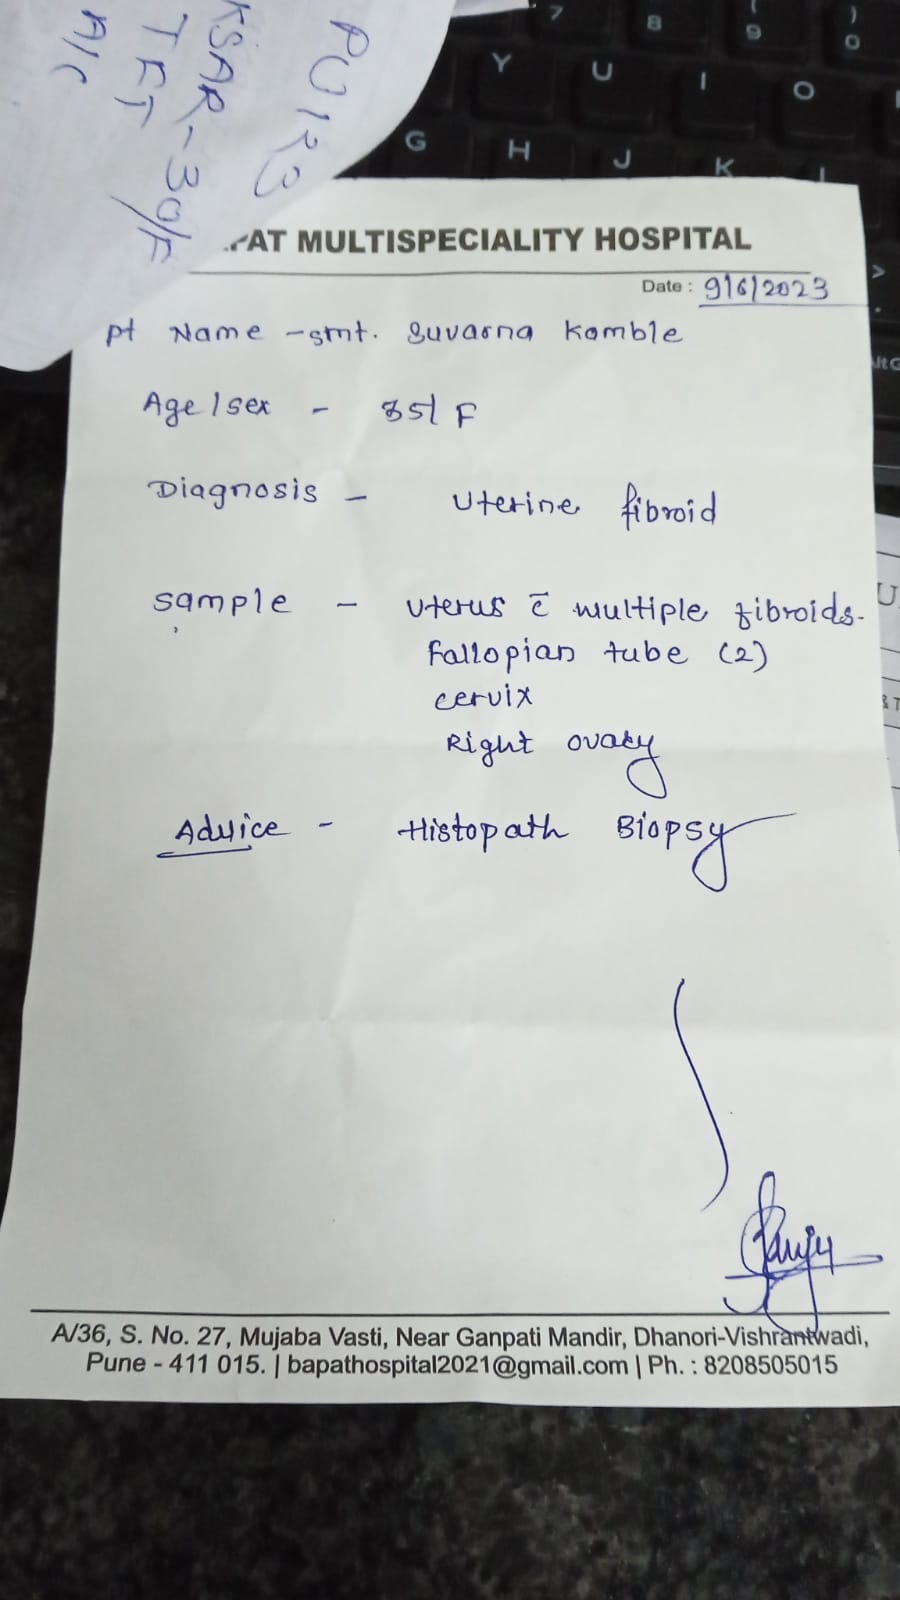 PU1R3
KSAR-30/F
TET
A/C
PAT MULTISPECIALITY HOSPITAL
Date : 9/6/2023
pt Name - smt. Suvarna Kamble
Age / sex - 35/ F
Diagnosis - Uterine fibroid
sample - Uterus c̄ multiple fibroids.
Fallopian tube (2)
cervix
Right ovary
Advice - Histopath Biopsy
A/36, S. No. 27, Mujaba Vasti, Near Ganpati Mandir, Dhanori-Vishrantwadi,
Pune - 411 015. | bapathospital2021@gmail.com | Ph. : 8208505015
7 8 9 0
Y U I O
G H J K